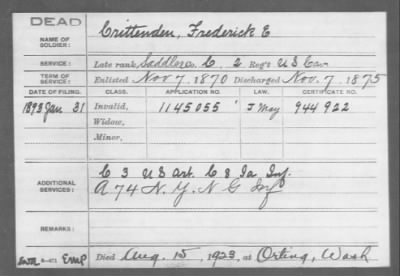 DEAD
NAME OF SOLDIER: Crittenden, Frederick E
SERVICE: Late rank, Saddler Co. C, 2 Reg't U S Cav
TERM OF SERVICE: Enlisted Nov 7, 1870 Discharged Nov. 7, 1875
DATE OF FILING. CLASS. APPLICATION NO. LAW. CERTIFICATE NO.
1893 Jan 31 Invalid, 1145055 944922
Widow,
Minor,
C 3 U S Art. C 8 Ia Inf.
ADDITIONAL SERVICES: A 74 N. Y. N G Inf
REMARKS:
Died Aug. 15, 1923, at Orting, Wash